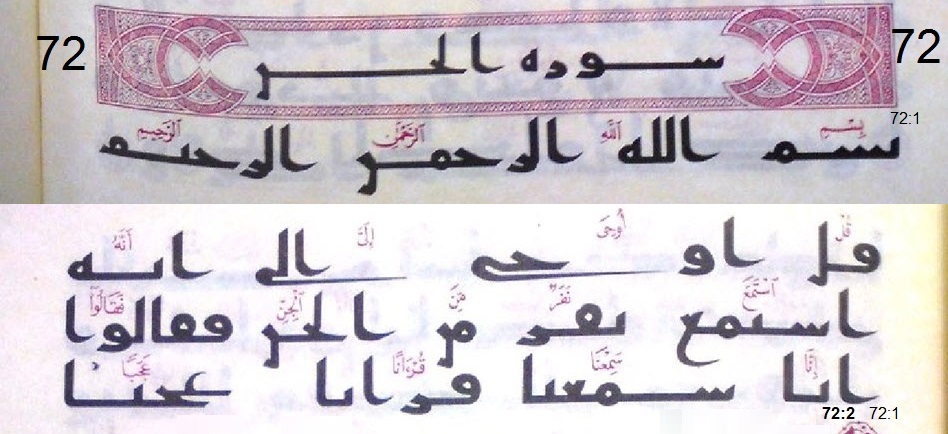 72 سورة الجن 72
72:1
بِسْمِ ٱللَّهِ ٱلرَّحْمَٰنِ ٱلرَّحِيمِ
بسم الله الرحمن الرحيم
قُلْ أُوحِىَ إِلَىَّ أَنَّهُ
قل اوحى الى انه
ٱسْتَمَعَ نَفَرٌ مِّنَ ٱلْجِنِّ فَقَالُوٓا۟
استمع نفر من الجن فقالوا
إِنَّا سَمِعْنَا قُرْءَانًا عَجَبًا
انا سمعنا قرانا عجبا
72:2 72:1